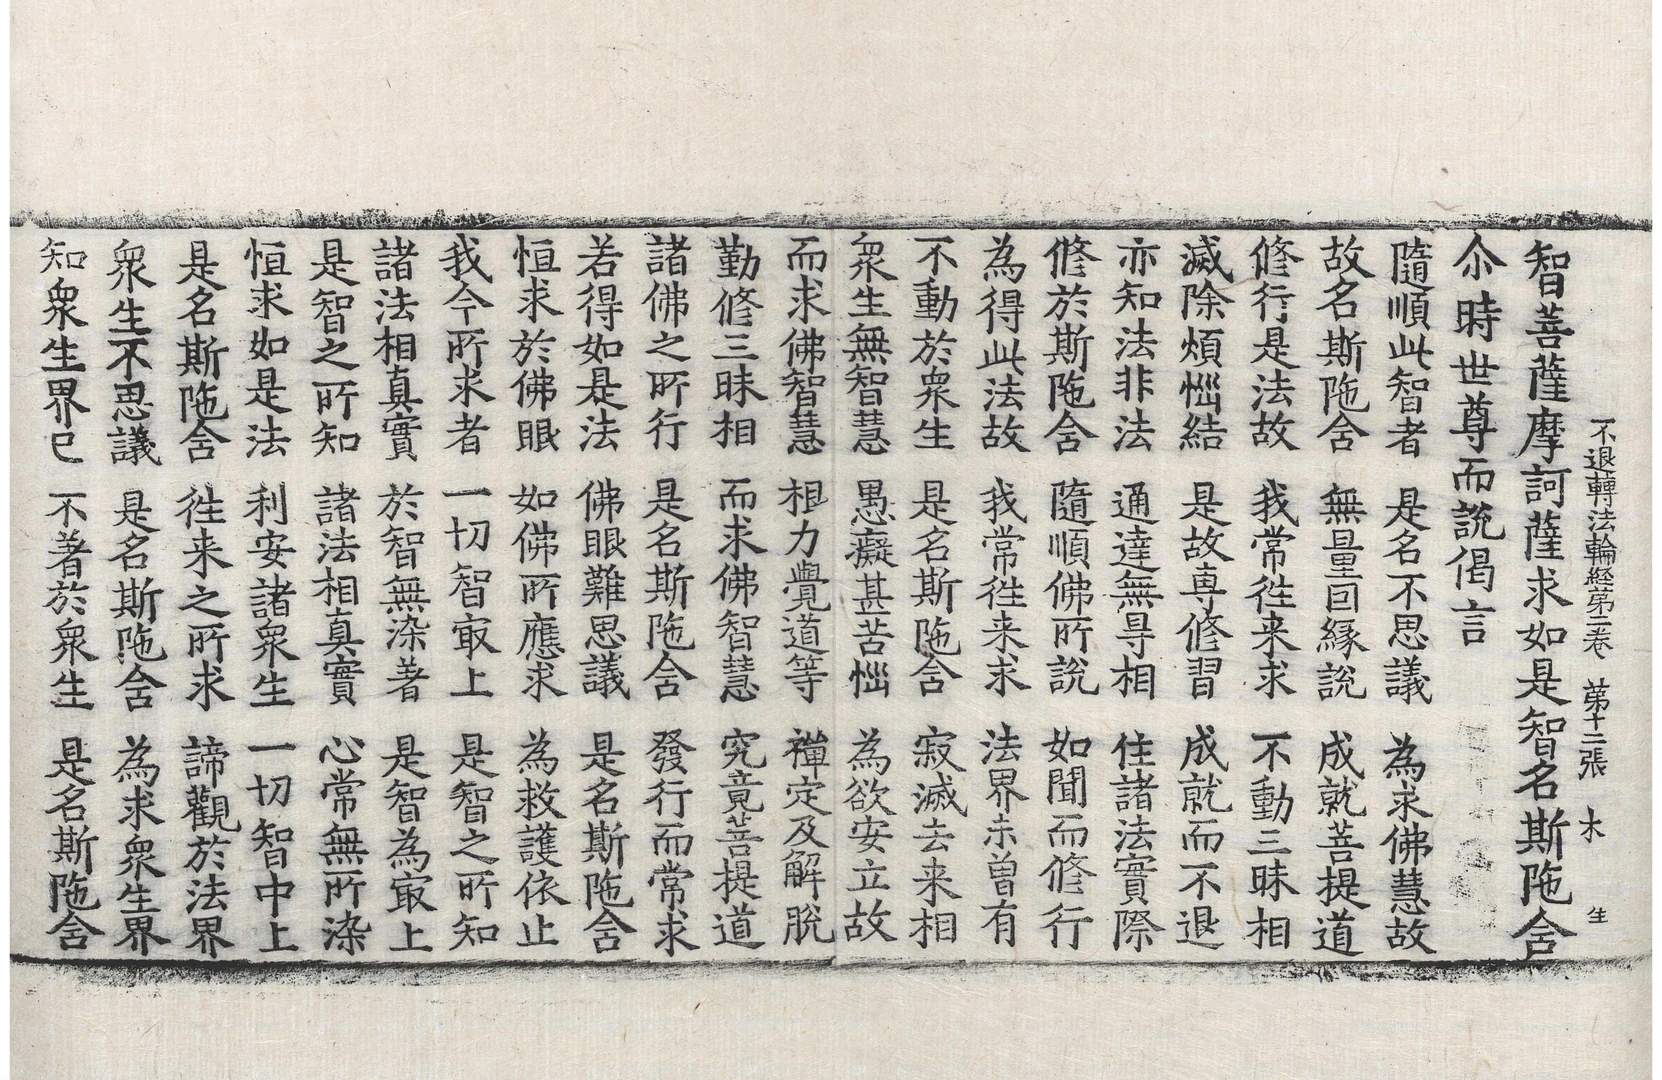 不退轉法輪経第二卷 第十二張 木 生
智菩薩摩訶薩求如是智名斯陁含
尒時世尊而說偈言
隨順此智者 是名不思議 為求佛慧故
故名斯陁含 無量回縁說 成就菩提道
修行是法故 我常徃来求 不動三昧相
滅除煩惱結 是故専修習 成就而不退
亦知法非法 通達無㝵相 住諸法實際
修於斯陁含 隨順佛所說 如聞而修行
為得此法故 我常徃来求 法界未曽有
不動於衆生 是名斯陁含 寂滅去来相
衆生無智慧 愚癡甚苦惱 為欲安立故
而求佛智慧 根力覺道等 禪定及解脫
勤修三昧相 而求佛智慧 究竟菩提道
諸佛之所行 是名斯陁含 發行而常求
若得如是法 佛眼難思議 是名斯陁含
恒求於佛眼 如佛所應求 為救護依止
我今所求者 一切智㝡上 是智之所知
諸法相真實 於智無染著 是智為㝡上
是智之所知 諸法相真實 心常無所染
恒求如是法 利安諸衆生 一切智中上
是名斯陁含 徃来之所求 諦觀於法界
衆生不思議 是名斯陁含 為求衆生界
知衆生界已 不著於衆生 是名斯陁含